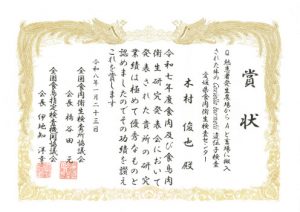 賞状
Q 熱を発生農場から A と畜場に搬入
された牛の Coxiella burnetii 遺伝子検査
愛媛県食肉衛生検査センター
木村 俊也 殿
令和七年度食肉及び食鳥肉
衛生研究発表会において
発表された貴所の研究
業績は極めて優秀なものと
認めましたのでその功績を讃え
これを賞します
令和八年一月二十三日
全国食肉衛生検査所協議会
会長 橋谷田 元
全国食鳥指定検査機関協議会
会長 伊地知 洋幸